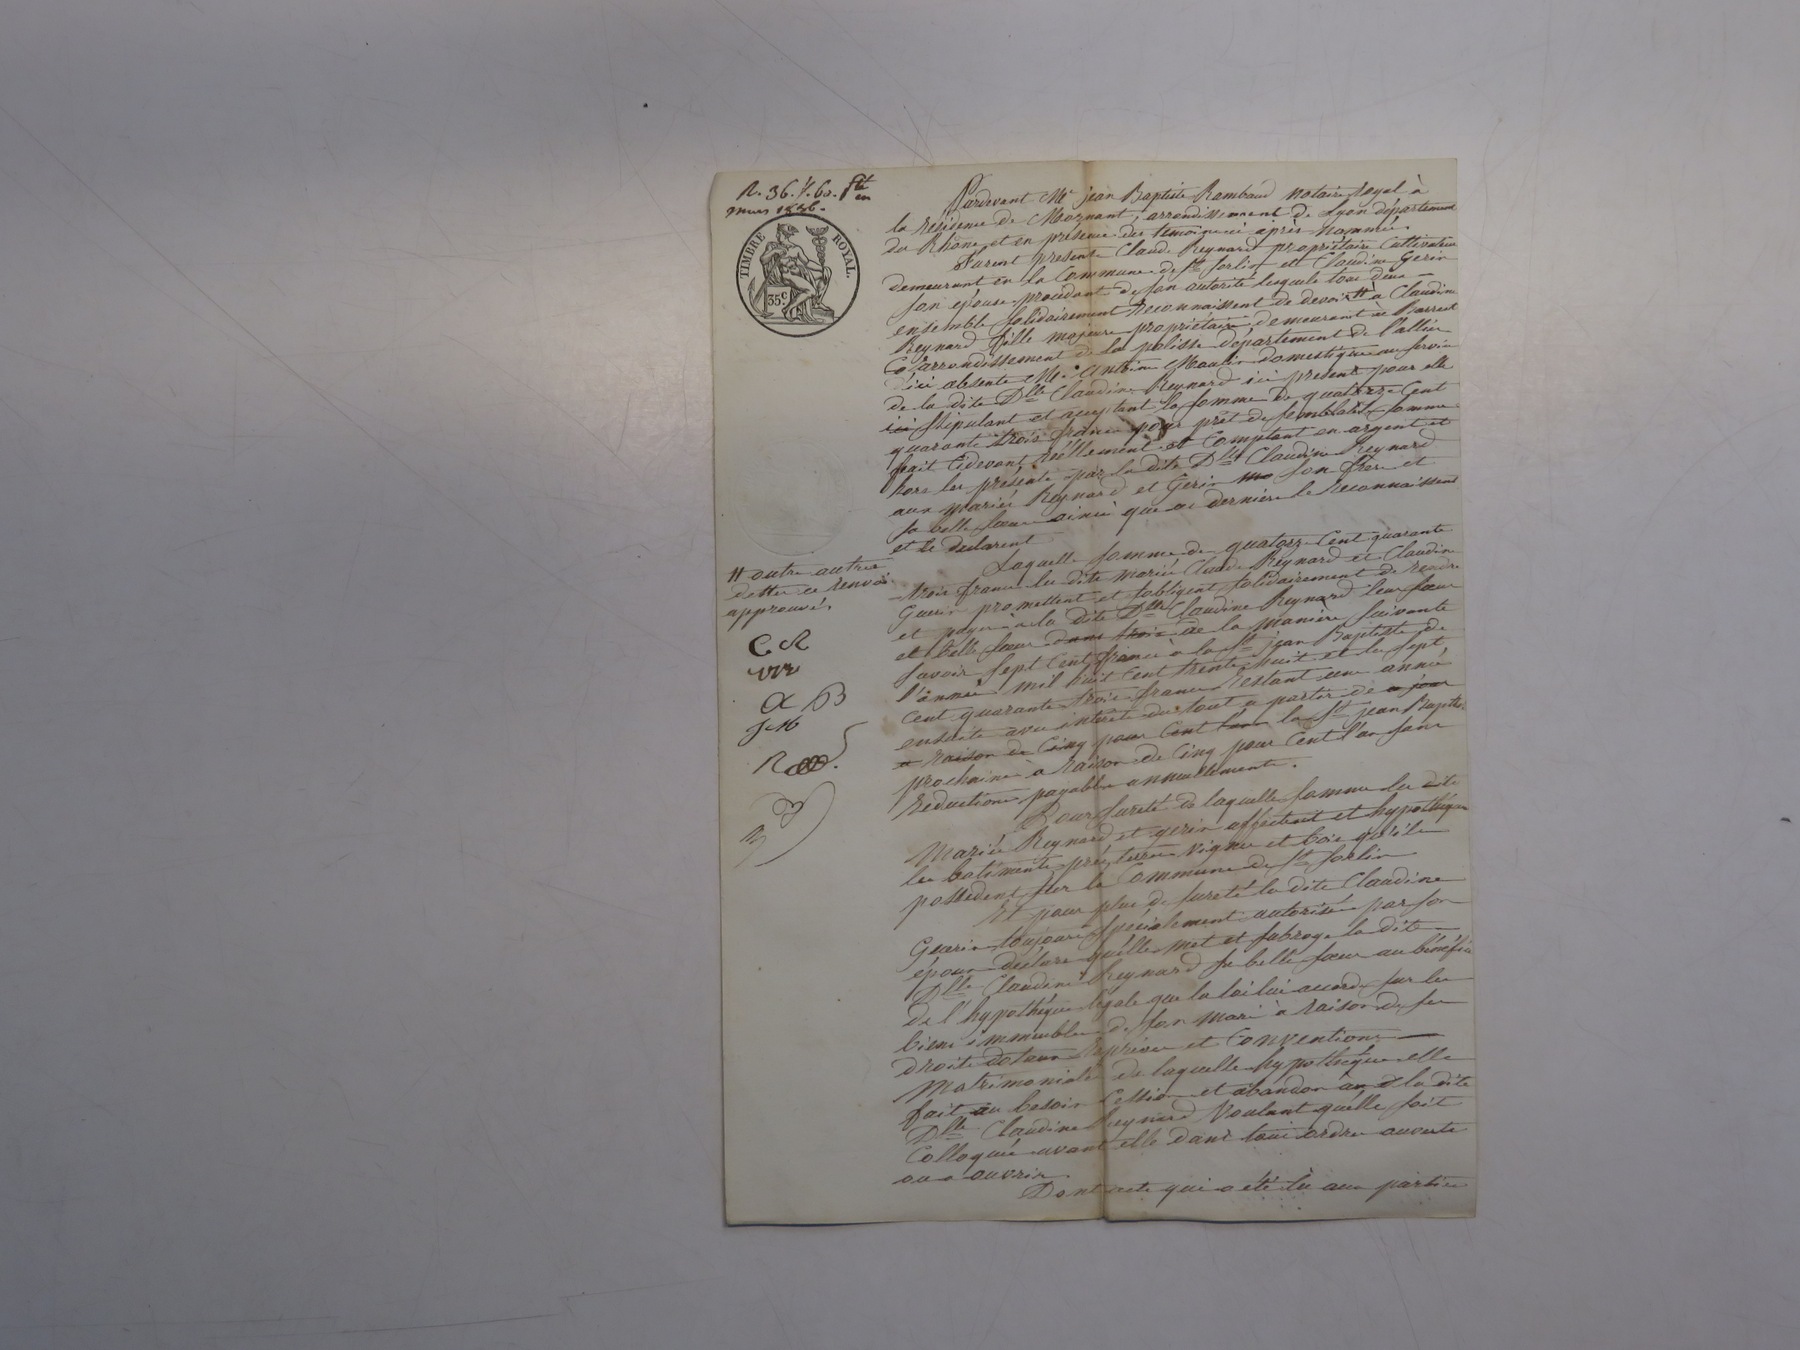 R. 36. f. 60. 
mars 1836.
TIMBRE ROYAL.
35c
Pardevant Me jean Baptiste Rambaud notaire royal à
la Résidence de Mornant, arrondissement de Lyon département
du Rhône et en présence des témoins ci après nommés.
Furent présents Claude Reynard propriétaire Cultivateur
demeurant en la Commune de St Sorlin et Claudine Gerin
son épouse procedant de son autorité lesquels tous deux
ensemble solidairement Reconnaissent de devoir # à Claudine
Reynard fille majeure propriétaire demeurant à Barrest
arrondissement de la palisse département de l'allier
d'ici absente Me Antoine Moulin domestique au servir
de la dite Dlle Claudine Reynard ici present pour elle
ici stipulant et acceptant la somme de quatorze Cent
quarante trois francs pour prêt de semblable somme
fait Cidevant réellement et Comptant en argent et
hors les présentes par la dite Dlle Claudine Reynard
aux mariés Reynard et Gerin son frere et
sa belle soeur ainsi que ces derniers le Reconnaissent
et le declarent
Laquelle somme de quatorze Cent quarante
trois francs les dits mariés Claude Reynard et Claudine
Guerin promettent et s'obligent solidairement de rendre
et payer à la dite Dlle Claudine Reynard leur soeur
et belle soeur dans trois de la manière suivante
savoir sept Cent francs à la St jean Baptiste de
l'année mil huit Cent trente huit et les sept
Cent quarante trois francs Restant une année
ensuite avec intérêt du tout a partir de ce jour
a raison de Cinq pour Cent l'an la St jean Baptiste
prochaine à raison de Cinq pour Cent l'an sans
Réduction payables annuellement.
Pour sureté de laquelle somme les dits
Mariés Reynard et gerin affectent et hypothèquent
les batiments prés, terres vignes et bois qu'ils
possèdent sur la Commune de St Sorlin
Et pour plus de sureté la dite Claudine
Guerin toujours spécialement autorisée par son
époux déclare qu'elle met et subroge la dite
Dlle Claudine Reynard sa belle soeur au bénéfice
de l'hypothèque légale que la loi lui accorde sur les
biens immeubles de son mari à raison de ses
droits dotaux reprises et Conventions
Matrimoniales de laquelle hypothèque elle
fait au besoin Cession et abandon à la dite
Dlle Claudine Reynard Voulant qu'elle soit
Colloquée avant elle dans tous ordres ouverts
ou a ouvrir.
Dont acte qui a été lu aux parties
# outre autres
dettes ce renvoi
approuvé.
C R
A B
J M
R